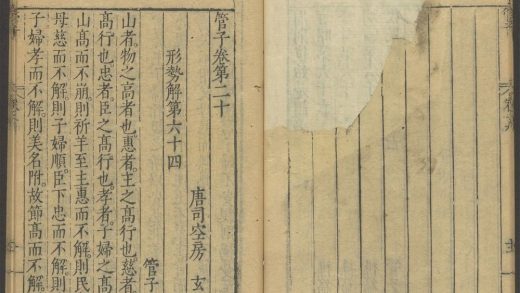 管子卷第二十
唐司空房 玄
形勢解第六十四
管子
山者。物之高者也。惠者。主之髙行也。慈者
髙行也。忠者。臣之髙行也。孝者。子婦之髙
山髙而不崩。則祈羊至。主惠而不解。則民
母慈而不解。則子婦順。臣下忠而不解。則
子婦孝而不解。則美名附。故節髙而不解。